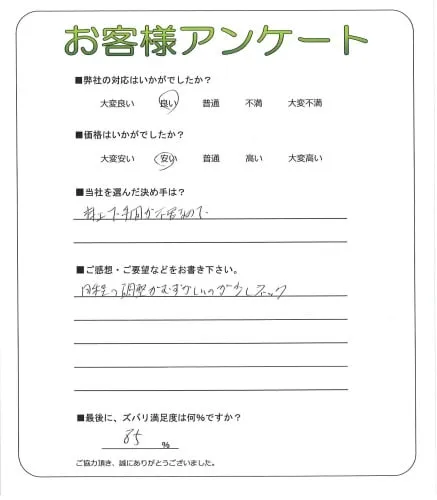 お客様アンケート
■弊社の対応はいかがでしたか？
大変良い 良い 普通 不満 大変不満
■価格はいかがでしたか？
大変安い 安い 普通 高い 大変高い
■当社を選んだ決め手は？
手間が不要なので
■ご感想・ご要望などをお書き下さい。
日程の調整がむずかしいのが少しネック
■最後に、ズバリ満足度は何%ですか？
85 %
ご協力頂き、誠にありがとうございました。